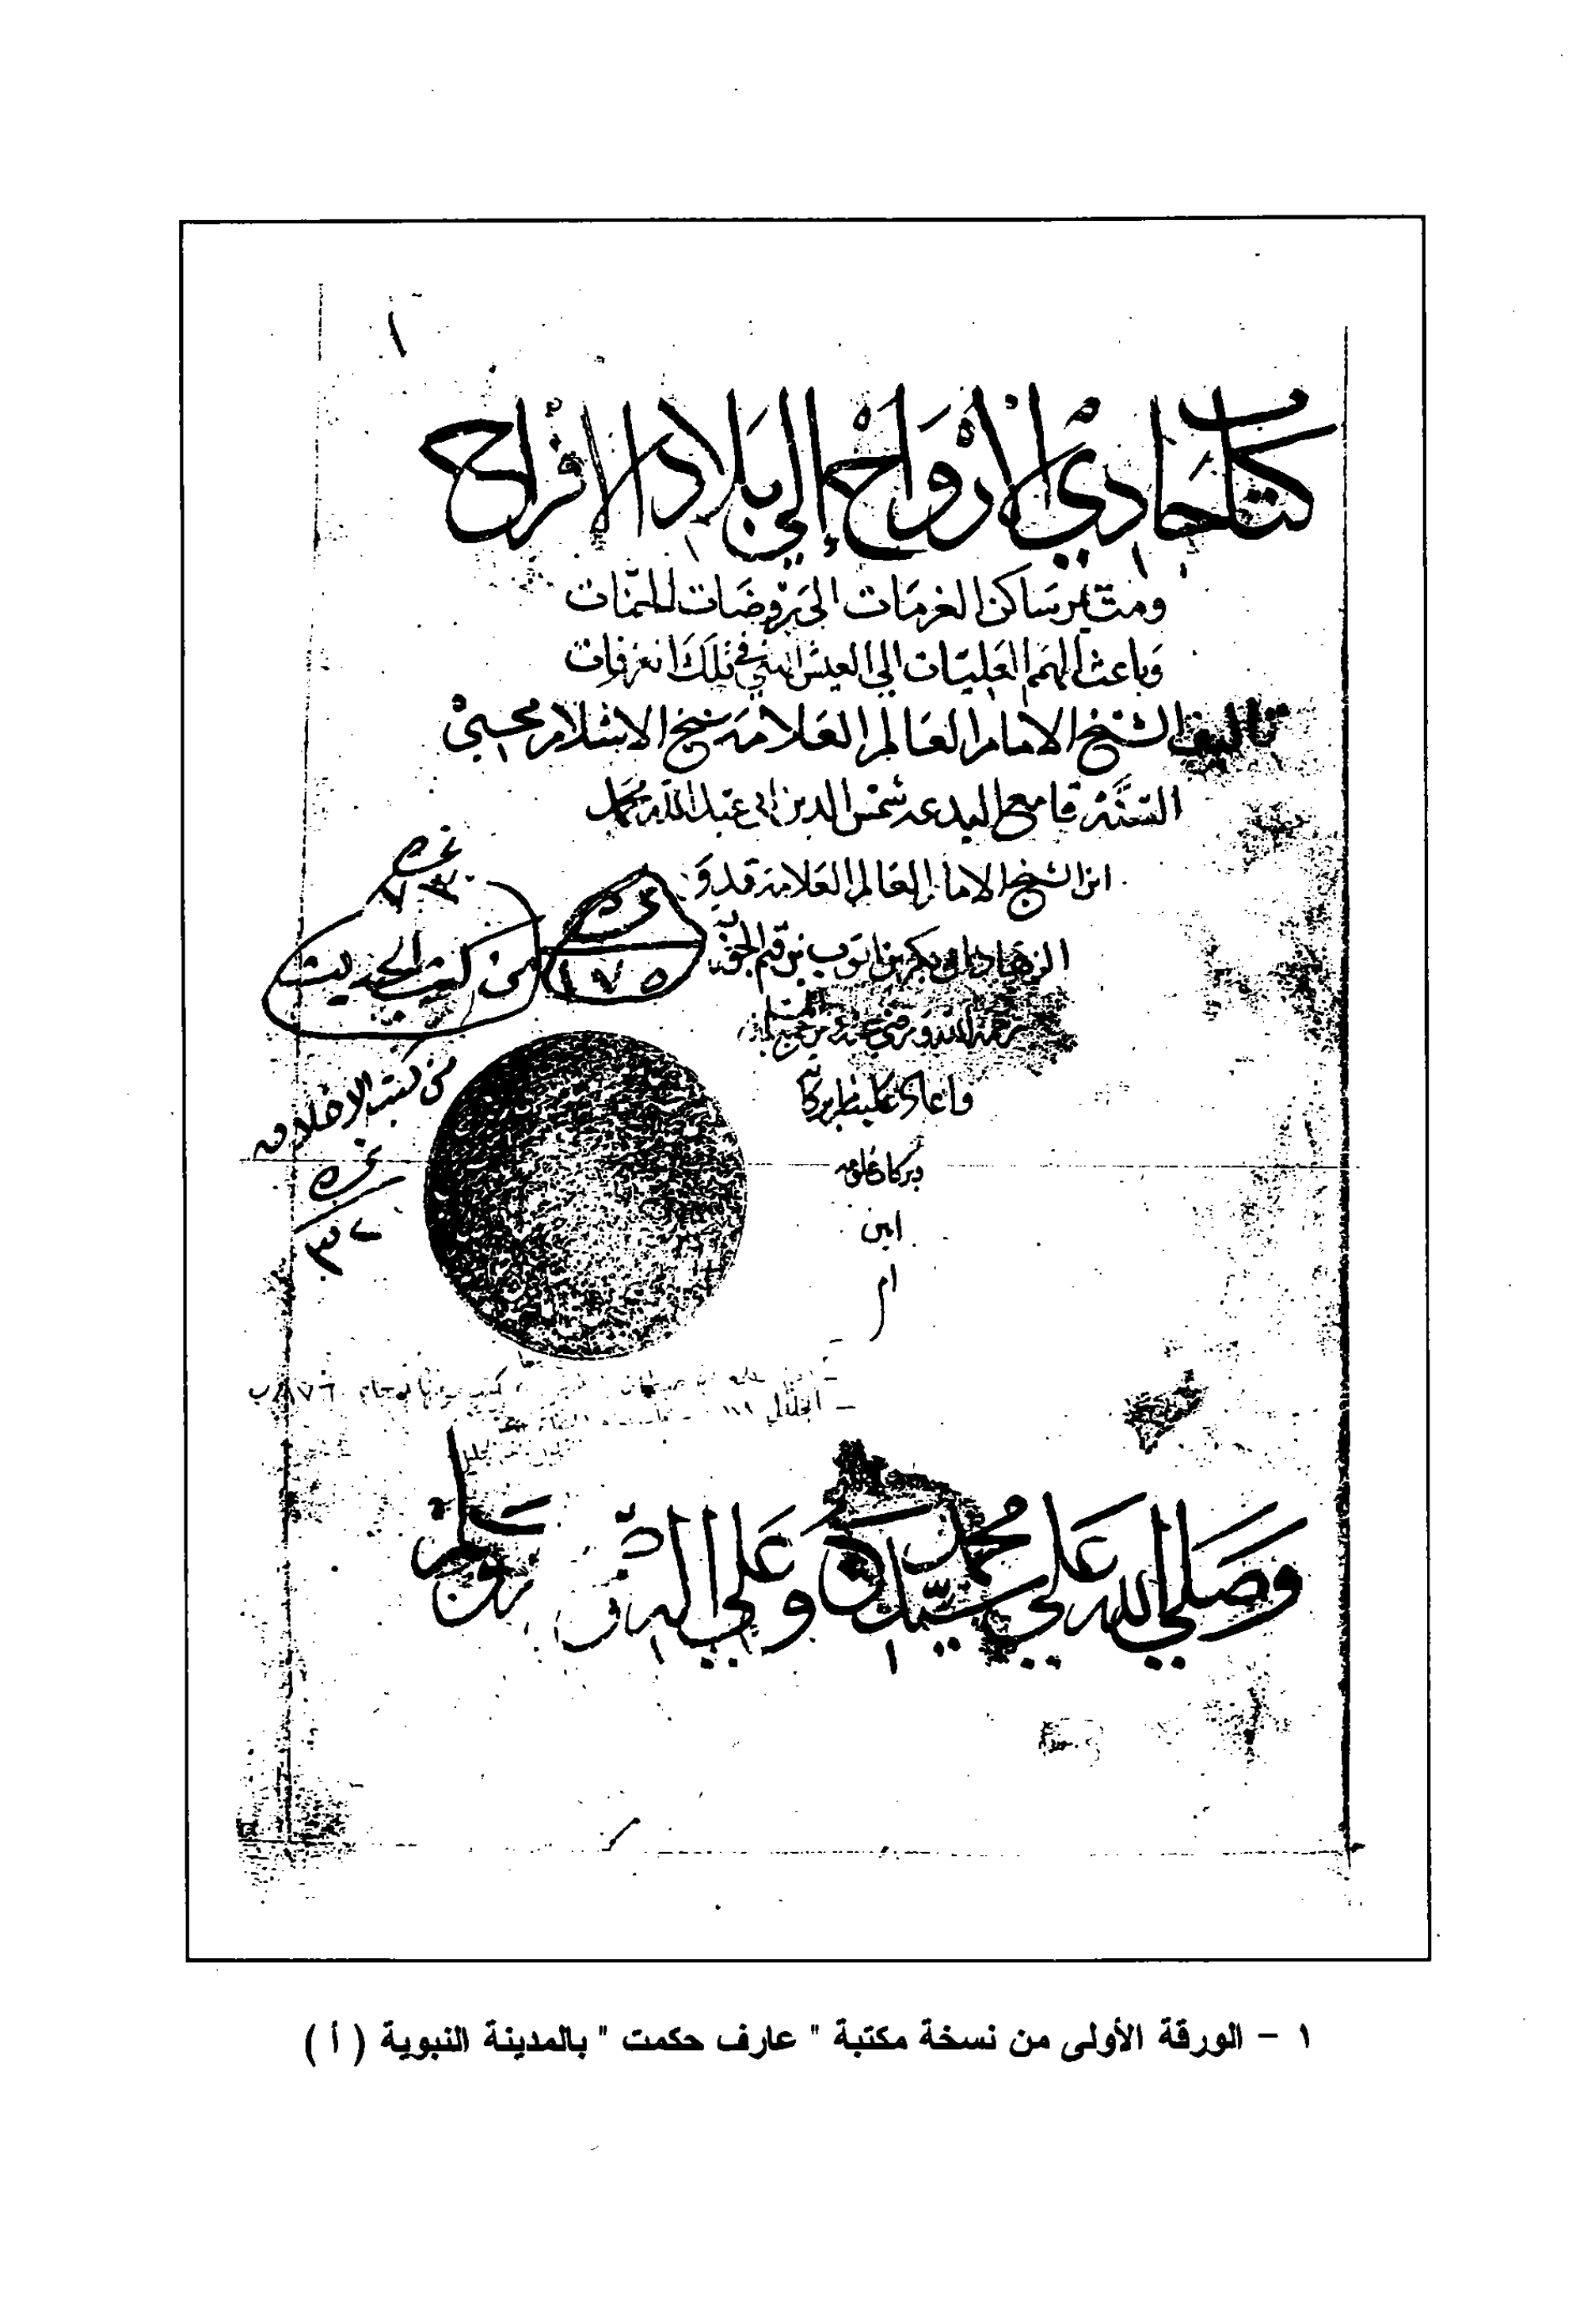 ١
كتاب حادي الأرواح إلى بلاد الافراح
ومثير ساكن الغرمات الى روضات الجنات
وباعث الهمم العليات الى العيش الهني في تلك الغرفات
تاليف الشيخ الامام العالم العلامة شيخ الاسلام محيي
السنة قامع البدعة شمس الدين ابي عبد الله محمد
ابن الشيخ الامام العالم العلامة قدوة
الزهاد ابي بكر بن ايوب بن قيم الجوزية
رحمه الله ورضي عنه
واعاد علينا من بركاته
وبركات علومه
امين
ام
نمره
٧٣
من كتب الحديث
نمره
١٧٥
من كتب الاخلاق
نمره
٣٢
وصلى الله على سيدنا محمد وعلى اله
وسلم
١ - الورقة الأولى من نسخة مكتبة " عارف حكمت " بالمدينة النبوية ( أ )